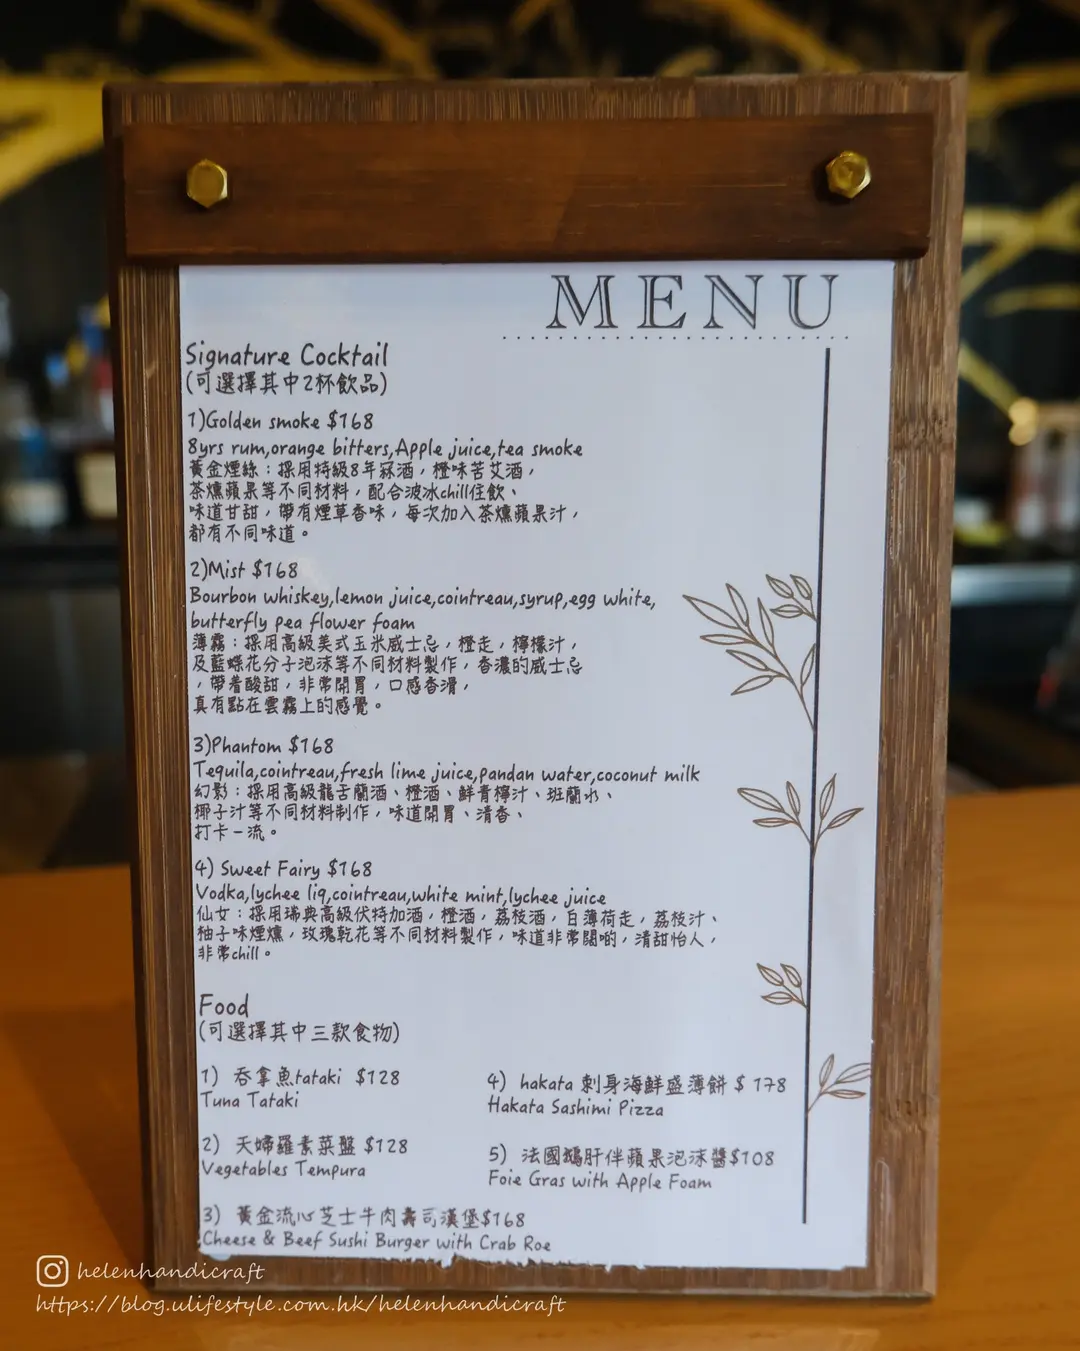 MENU
Signature Cocktail
(可選擇其中2杯飲品)
1)Golden smoke $168
8yrs rum,orange bitters,Apple juice,tea smoke
黃金煙絲：採用特級8年冧酒，橙味苦艾酒，
茶燻蘋果等不同材料，配合波冰chill住飲、
味道甘甜，帶有煙草香味，每次加入茶燻蘋果汁，
都有不同味道。
2)Mist $168
Bourbon whiskey,lemon juice,cointreau,syrup,egg white,
butterfly pea flower foam
薄霧：採用高級美式玉米威士忌，橙走，檸檬汁，
及藍蝶花分子泡沫等不同材料製作，香濃的威士忌
，帶着酸甜，非常開胃，口感香滑，
真有點在雲霧上的感覺。
3)Phantom $168
Tequila,cointreau,fresh lime juice,pandan water,coconut milk
幻影：採用高級龍舌蘭酒、橙酒、鮮青檸汁、班蘭水、
椰子汁等不同材料制作，味道開胃、清香、
打卡一流。
4) Sweet Fairy $168
Vodka,lychee liq,cointreau,white mint,lychee juice
仙女：採用瑞典高級伏特加酒，橙酒，荔枝酒，白薄荷走，荔枝汁、
柚子味煙燻，玫瑰乾花等不同材料製作，味道非常闊啲，清甜怡人，
非常chill。
Food
(可選擇其中三款食物)
1) 吞拿魚tataki $128
Tuna Tataki
2) 天婦羅素菜盤 $128
Vegetables Tempura
3) 黃金流心芝士牛肉壽司漢堡$168
Cheese & Beef Sushi Burger with Crab Roe
4) hakata 刺身海鮮盛薄餅 $ 178
Hakata Sashimi Pizza
5) 法國鵝肝伴蘋果泡沫醬$108
Foie Gras with Apple Foam
helenhandicraft
https://blog.ulifestyle.com.hk/helenhandicraft